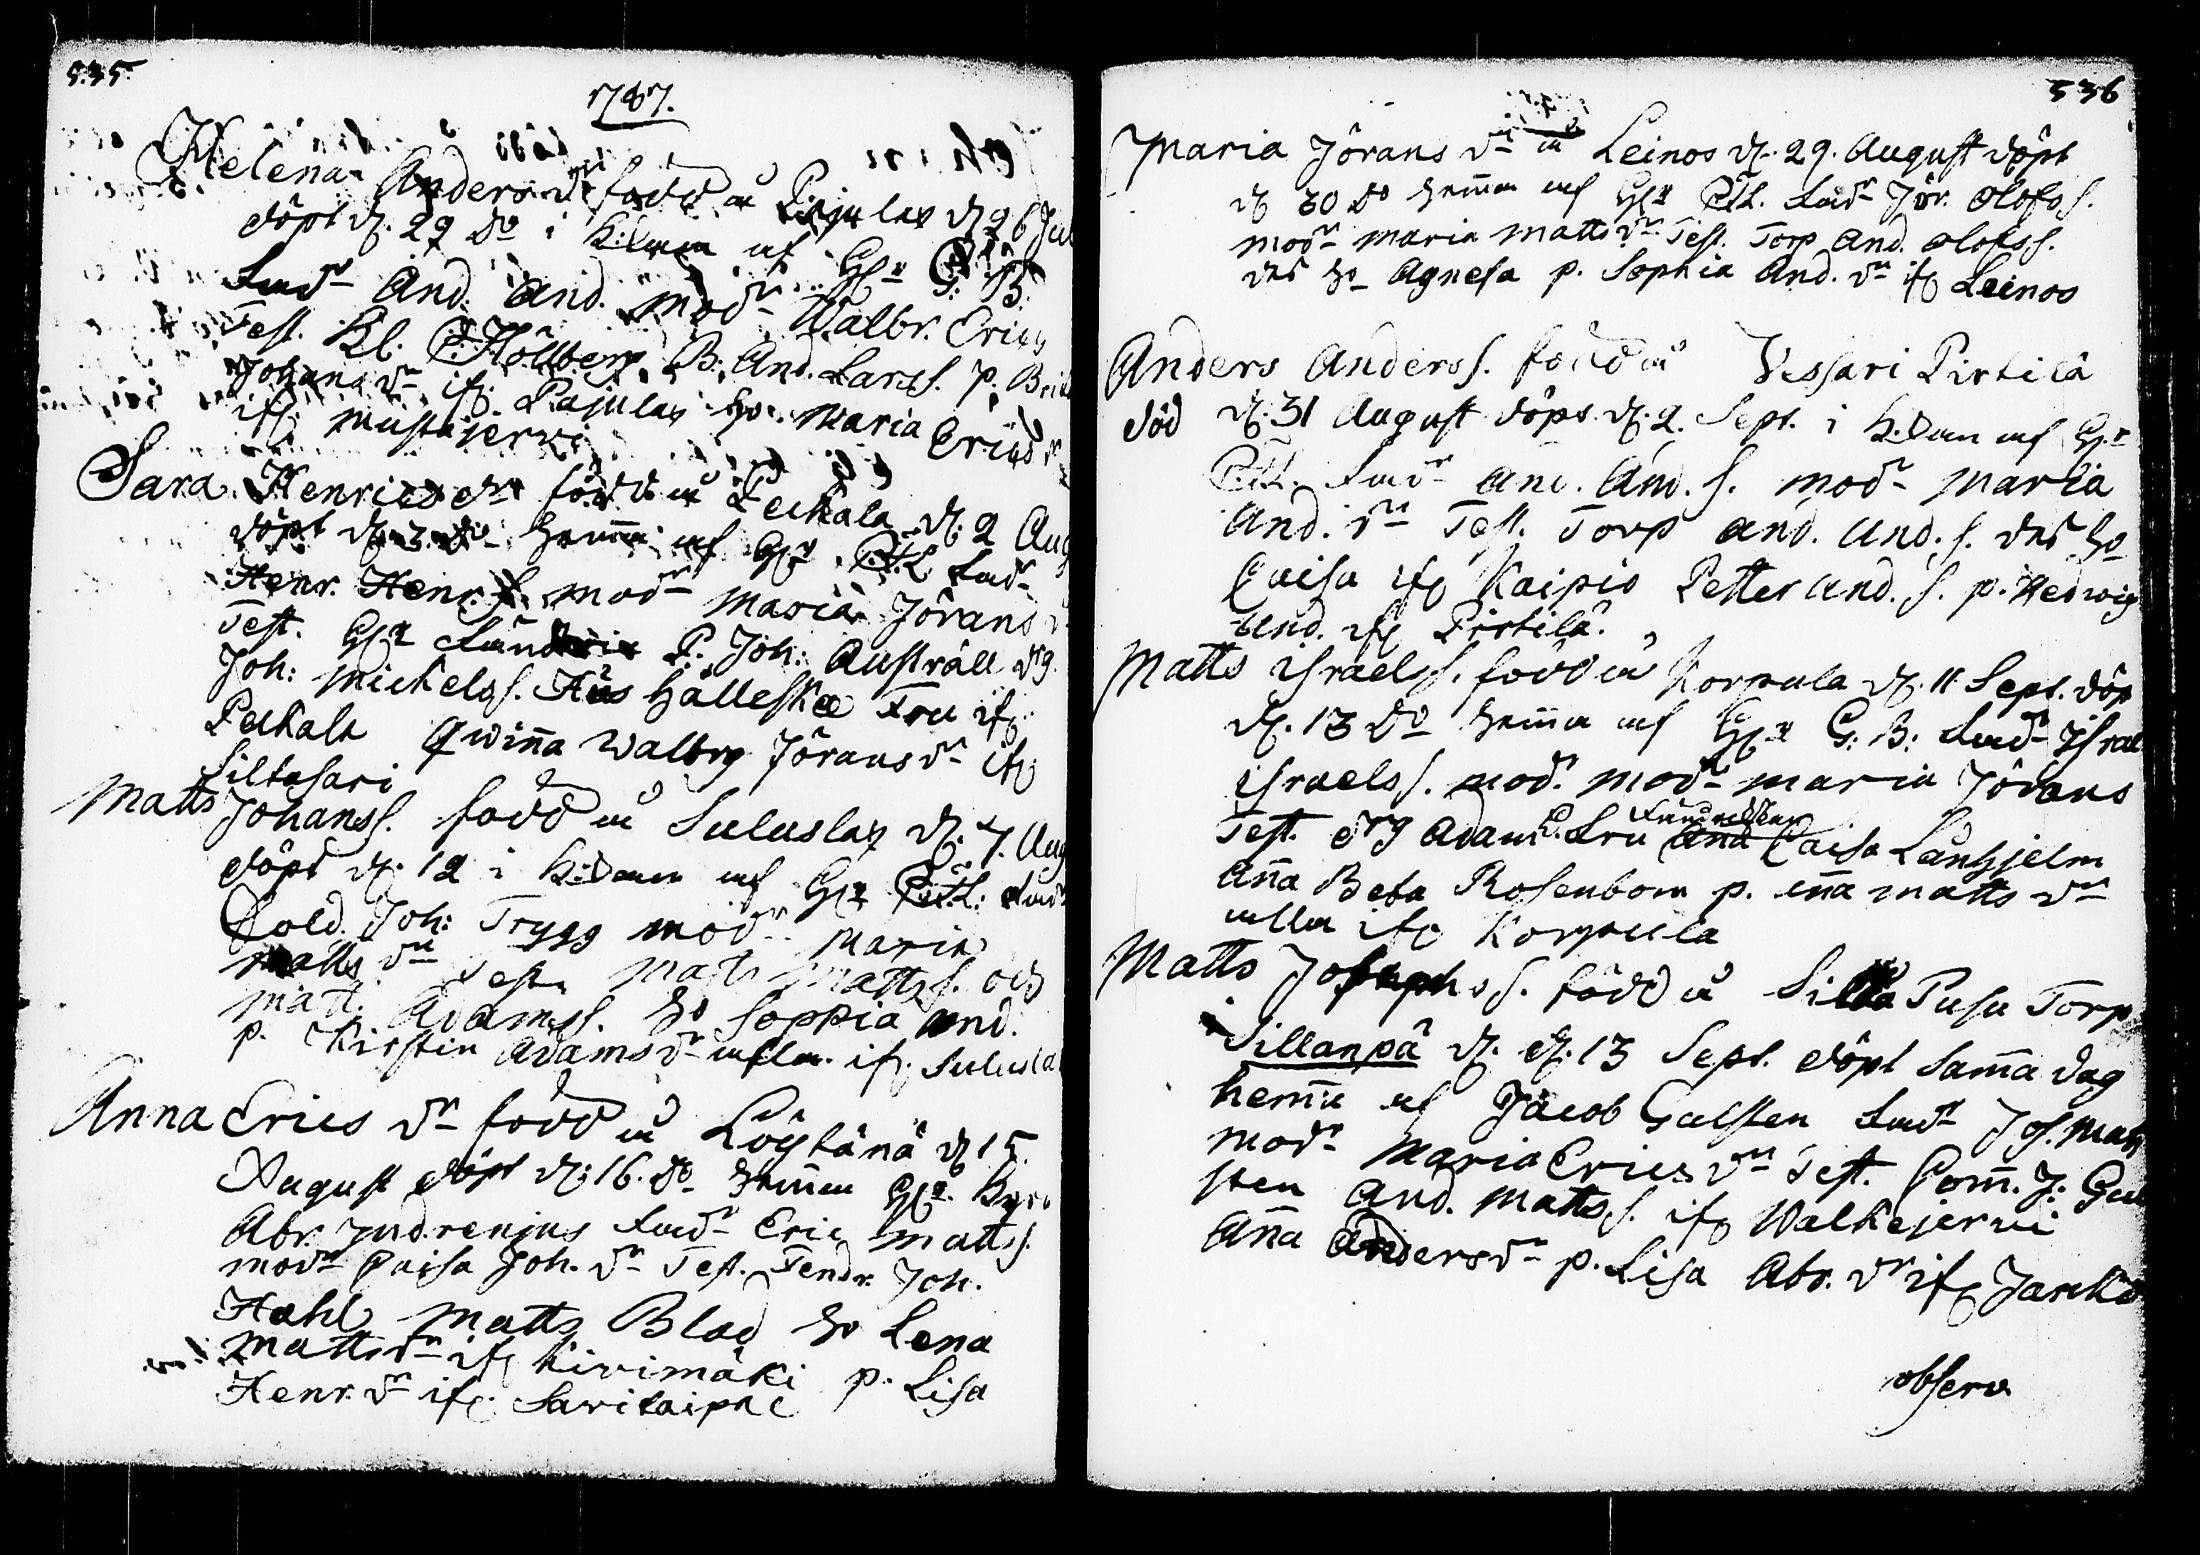 535.
1787.
Helena Anders dr född å Pajulax d. 26 Jul
döpt d. 29 do i Kÿrkan af Hr G: B:
Fadr And. And. modr Walbr. Erics
Test. Kl. P. Höllberg B: And. Larss. p. Brit
Johans dr ifr. Pajulax ho. Maria Erics dr
ifr. Mustajerwi
Sara Henrics dr född å Peckala d. 2 Aug
döpt d. 3. do hemma af Hr P.H. Fadr
Henr. Henr. s. modr Maria Jörans d
Test. Hr P. Joh: Austräll drg.
Joh: Mickelss. Hälleska Fru ifr.
Peckala Qwinna Walbrg Jörans dr ifr.
Siltasari
Matts Johanss. född å Suluslax d. 7. Aug
döpt d. 12 i Kÿrkan af Hr P.H: Fadr
Sold. Joh: Trygg modr Maria
Matts dr Test. Matts Mattss. och
Matt. Adamss. ho Sophia And.
p. Kirstin Adams dr alla ifr. Sulusla
Anna Erics dr född å Löytänä d. 15
August döpt d. 16. do hemma Hr.
Abr. Indrenius Fadr Eric Matts s.
modr Caisa Joh. dr Test. Fendr. Joh.
Hahl Matts Blad ho Lena
Matts dr ifr Kivimäki p. Lisa
Henr. dr ifr. Savikaipale
536
Maria Jörans dr å Leinos d. 29. August döpt
d 30 do hemma af Hr P.H. Fadr Jör. Olofs s.
modr Maria Matts dr Test. Torp And. Olofs s.
des ho Agnesa p. Sophia And. dr ifr Leinos
Anders Anderss. född å Vessari Pirtilä
död d. 31 August döpt d. 2. Sept. i Kÿrkan af Hr
P.H. Fadr And. And. s. modr Maria
And. dr Test. Torp And. And. s. des ho
Caisa ifr Kaipio Petter And. s. p. Hedwig
And. ifr Pirtilä.
Matts Israelss. född å Korpula d. 11 Sept. döp
d. 13 do hemma af Hr G: B: Fadr Israel
Israelss. mod. modr Maria Jörans
Test. drg Adam Fru And Caisa Lanhjelm
Anna Beta Rosenbom p. Anna Matts dr
alla ifr Korpula
Matts Josephss. född å Silla Pusu Torp
Sillanpä d. d. 13 Sept. döpt samma dag
hemma af Jacob Galsten Fadr Jos. Matts
modr Maria Erics dr Test. Comm. J: Gal
sten And. Matts s. ifr Walkejerwi
Anna Anders dr p. Lisa Abr. dr ifr
observ.